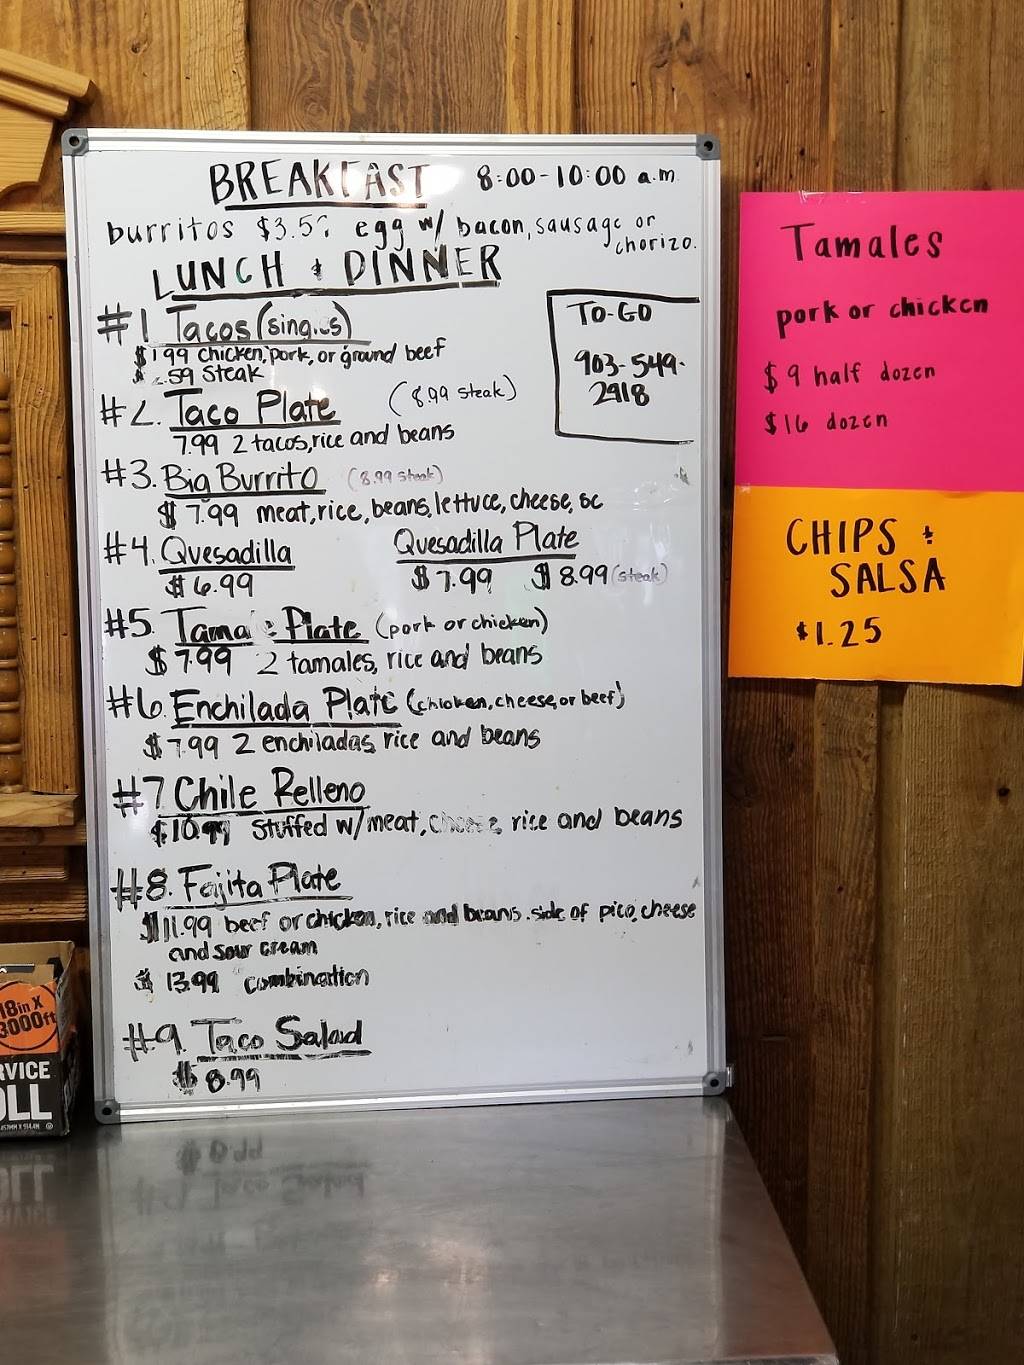 BREAKFAST 8:00-10:00 a.m.
burritos $3.5 egg w/ bacon, sausage or
chorizo.
LUNCH & DINNER
#1 Tacos (singles)
$1.99 chicken, pork, or ground beef
$2.59 Steak
#2. Taco Plate (8.99 steak)
7.99 2 tacos, rice and beans
#3. Big Burrito (8.99 steak)
$7.99 meat, rice, beans, lettuce, cheese, sc
#4. Quesadilla
$6.99
Quesadilla Plate
$7.99 $8.99 (steak)
#5. Tamale Plate (pork or chicken)
$7.99 2 tamales, rice and beans
#6. Enchilada Plate (chicken, cheese, or beef)
$7.99 2 enchiladas, rice and beans
#7 Chile Relleno
$10.99 Stuffed w/ meat, cheese, rice and beans
#8. Fajita Plate
$11.99 beef or chicken, rice and beans. side of pico, cheese
and sour cream
$13.99 combination
#9. Taco Salad
$8.99
TO-GO
903-549-
2918
Tamales
pork or chicken
$9 half dozen
$16 dozen
CHIPS &
SALSA
$1.25
18in X
3000ft
RVICE
OLL